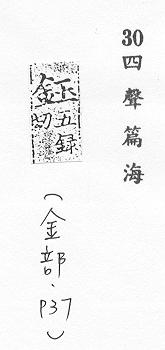 30四聲篇海
鈺五録切
(金部.P37)